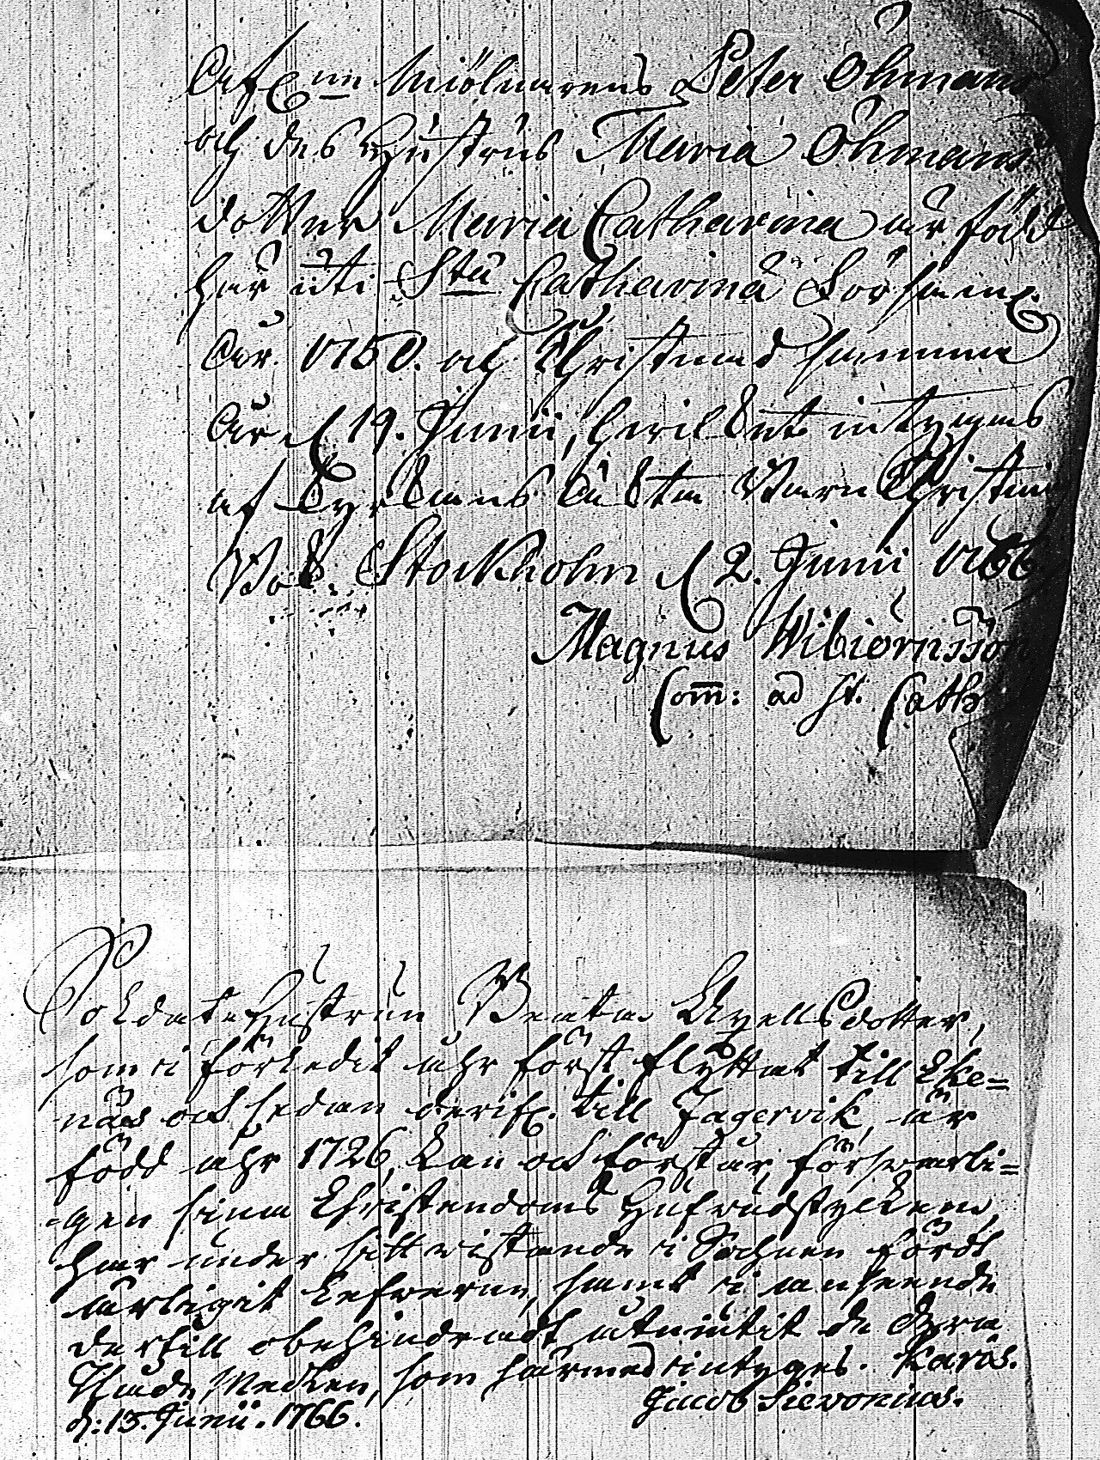 Afl:ne Miölnarens Peter Öhmans
och des Hustrus Maria Öhmans
dotter Maria Catharina är född
här uti Sta Catharina Församl:
Åar 1750. och Christnad samma
Åar d. 19. Junii, hvilket intygas
af Kyrkians bästa Barn Christni
Bok. Stockholm d. 2. Junii 1766
Magnus Wibiörnsson
Com̅: ad St. Cath
Soldatehustrun Beata Axellsdotter,
som i förledit åhr först flyttat till Eke=
näs och sedan derifr. till Jagervik, är
född åhr 1726, kan och förstår försvarli=
gen sina Christendoms Hufvudstycken,
har under sitt vistande i Socknen fördt
ärligit lefverne, samt i anseende
dertill obehindradt utniutit de dyra
Nåde Medlen, som härmed intyges. Karis.
d: 13. Junii. 1766.
Jacob Sievonius.